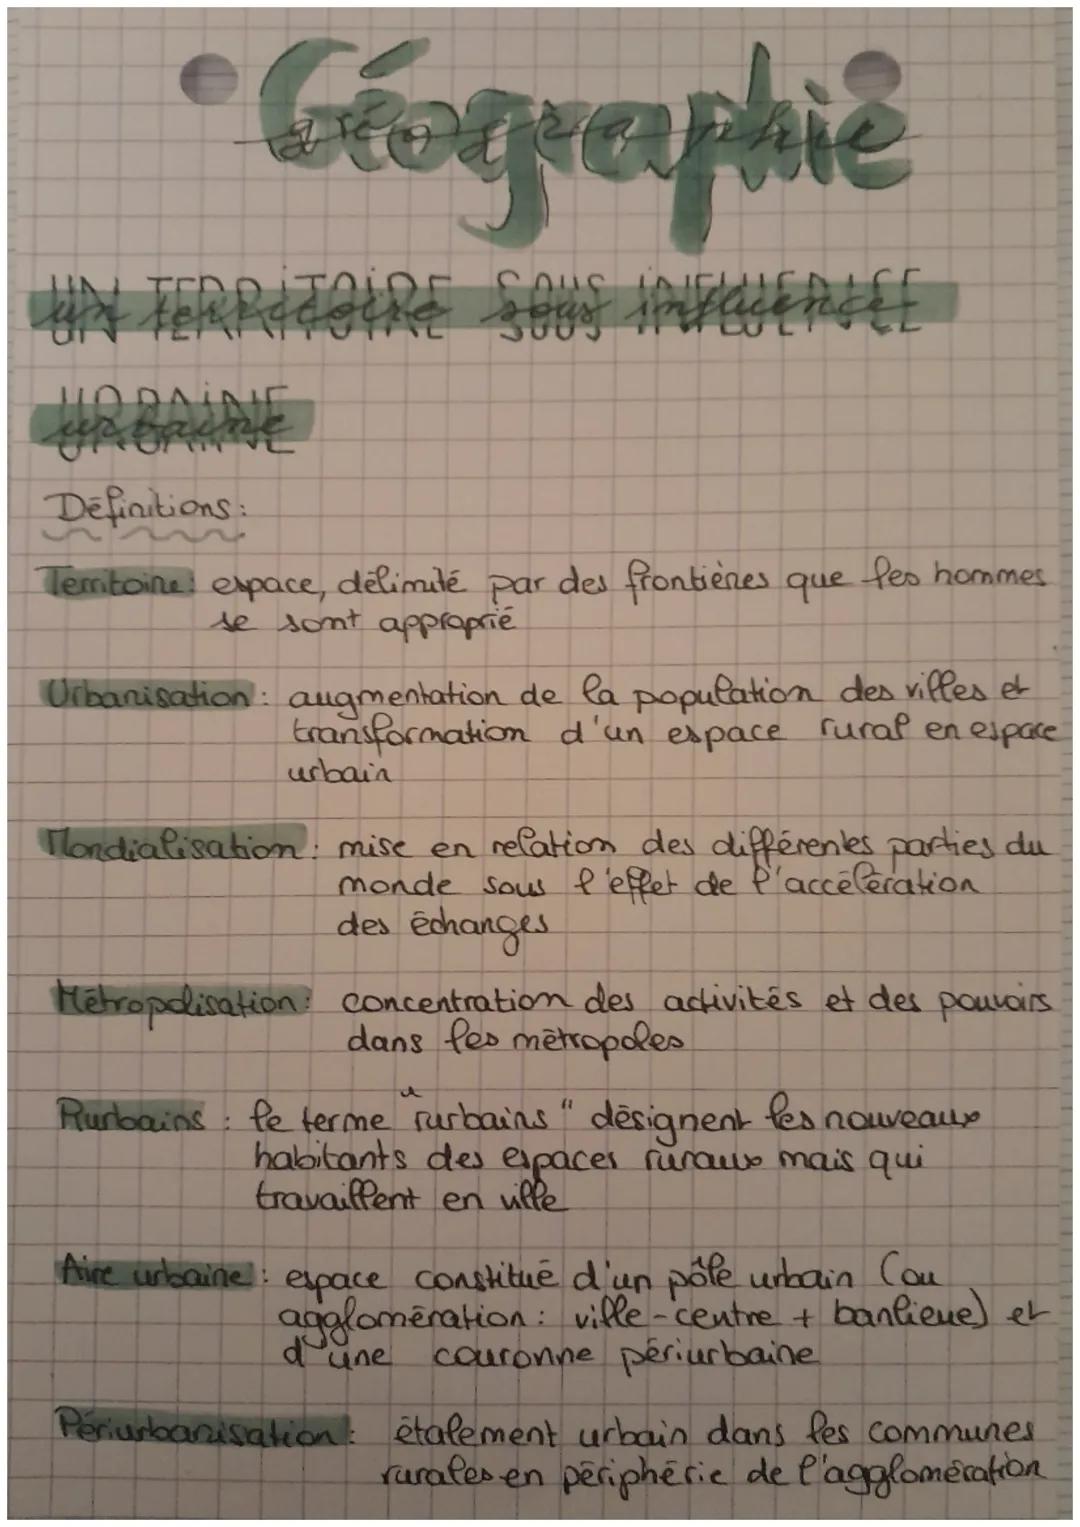 • Géographie
UN TERRITOIRE SOUS INFLUENCE
URBAINE
Définitions:
Territoire: espace, délimité par des frontières que les hommes
se sont approprié
Urbanisation: augmentation de la population des villes et
transformation d'un espace rural en espace
urbain
Mondialisation: mise en relation des différentes parties du
monde sous l'effet de l'accélération
des échanges
Métropolisation: concentration des activités et des pouvoirs
dans les métropoles
Rurbains: le terme "rurbains" désignent les nouveaux
habitants des espaces ruraux mais qui
travaillent en ville
Aire urbaine: espace constitué d'un pôle urbain (ou
agglomération: ville-centre + banlieue) et
d'une couronne périurbaine
Périurbanisation: étalement urbain dans les communes
rurales en périphérie de l'agglomération